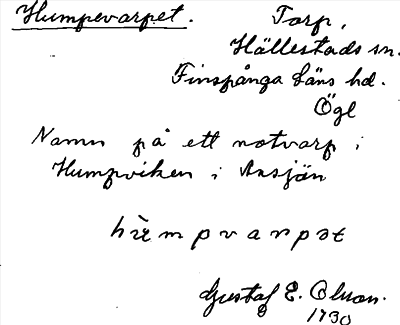 Humpevarpet. Torp,
Hällestads sn.
Finspånga läns hd.
Ögl
Namn på ett notvarp i
Humpviken i Ansjön
Gustaf E. Olson.
1930